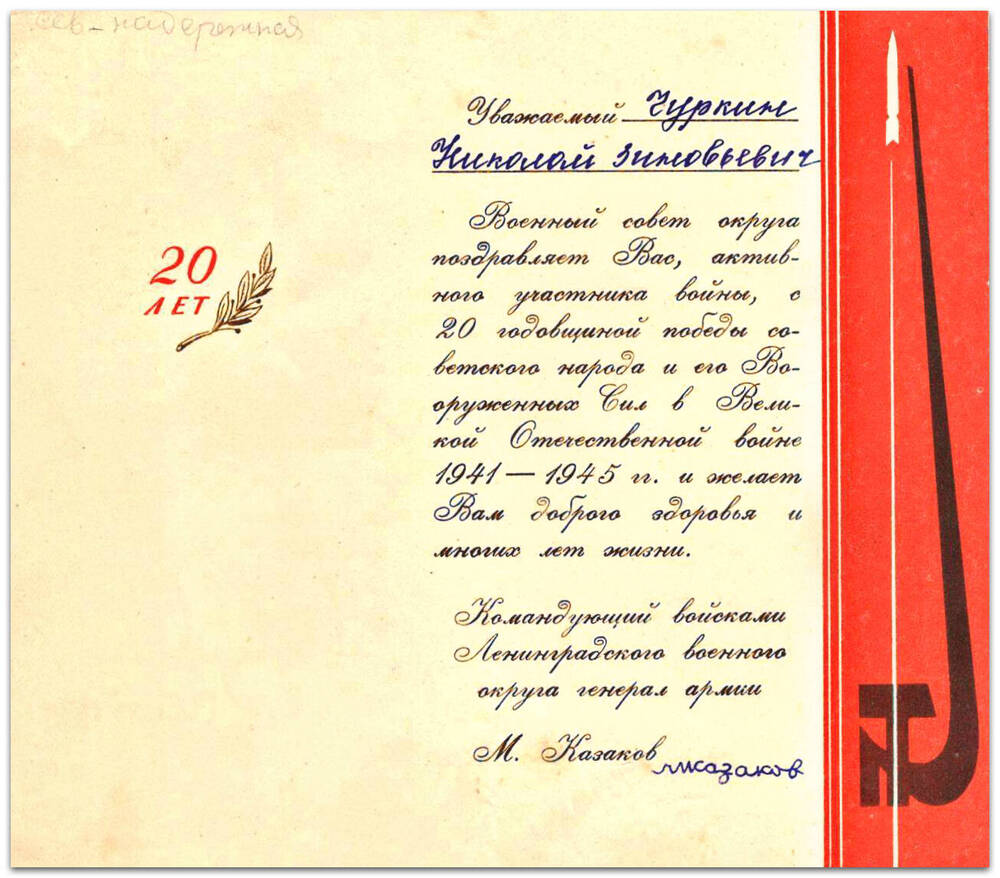 Сев-надережная
20
ЛЕТ
Уважаемый Чуркин
Николай Зиновьевич
Военный совет округа
поздравляет Вас, актив-
ного участника войны, с
20 годовщиной победы со-
ветского народа и его Во-
оруженных Сил в Вели-
кой Отечественной войне
1941 — 1945 гг. и желает
Вам доброго здоровья и
многих лет жизни.
Командующий войсками
Ленинградского военного
округа генерал армии
М. Казаков
мказаков